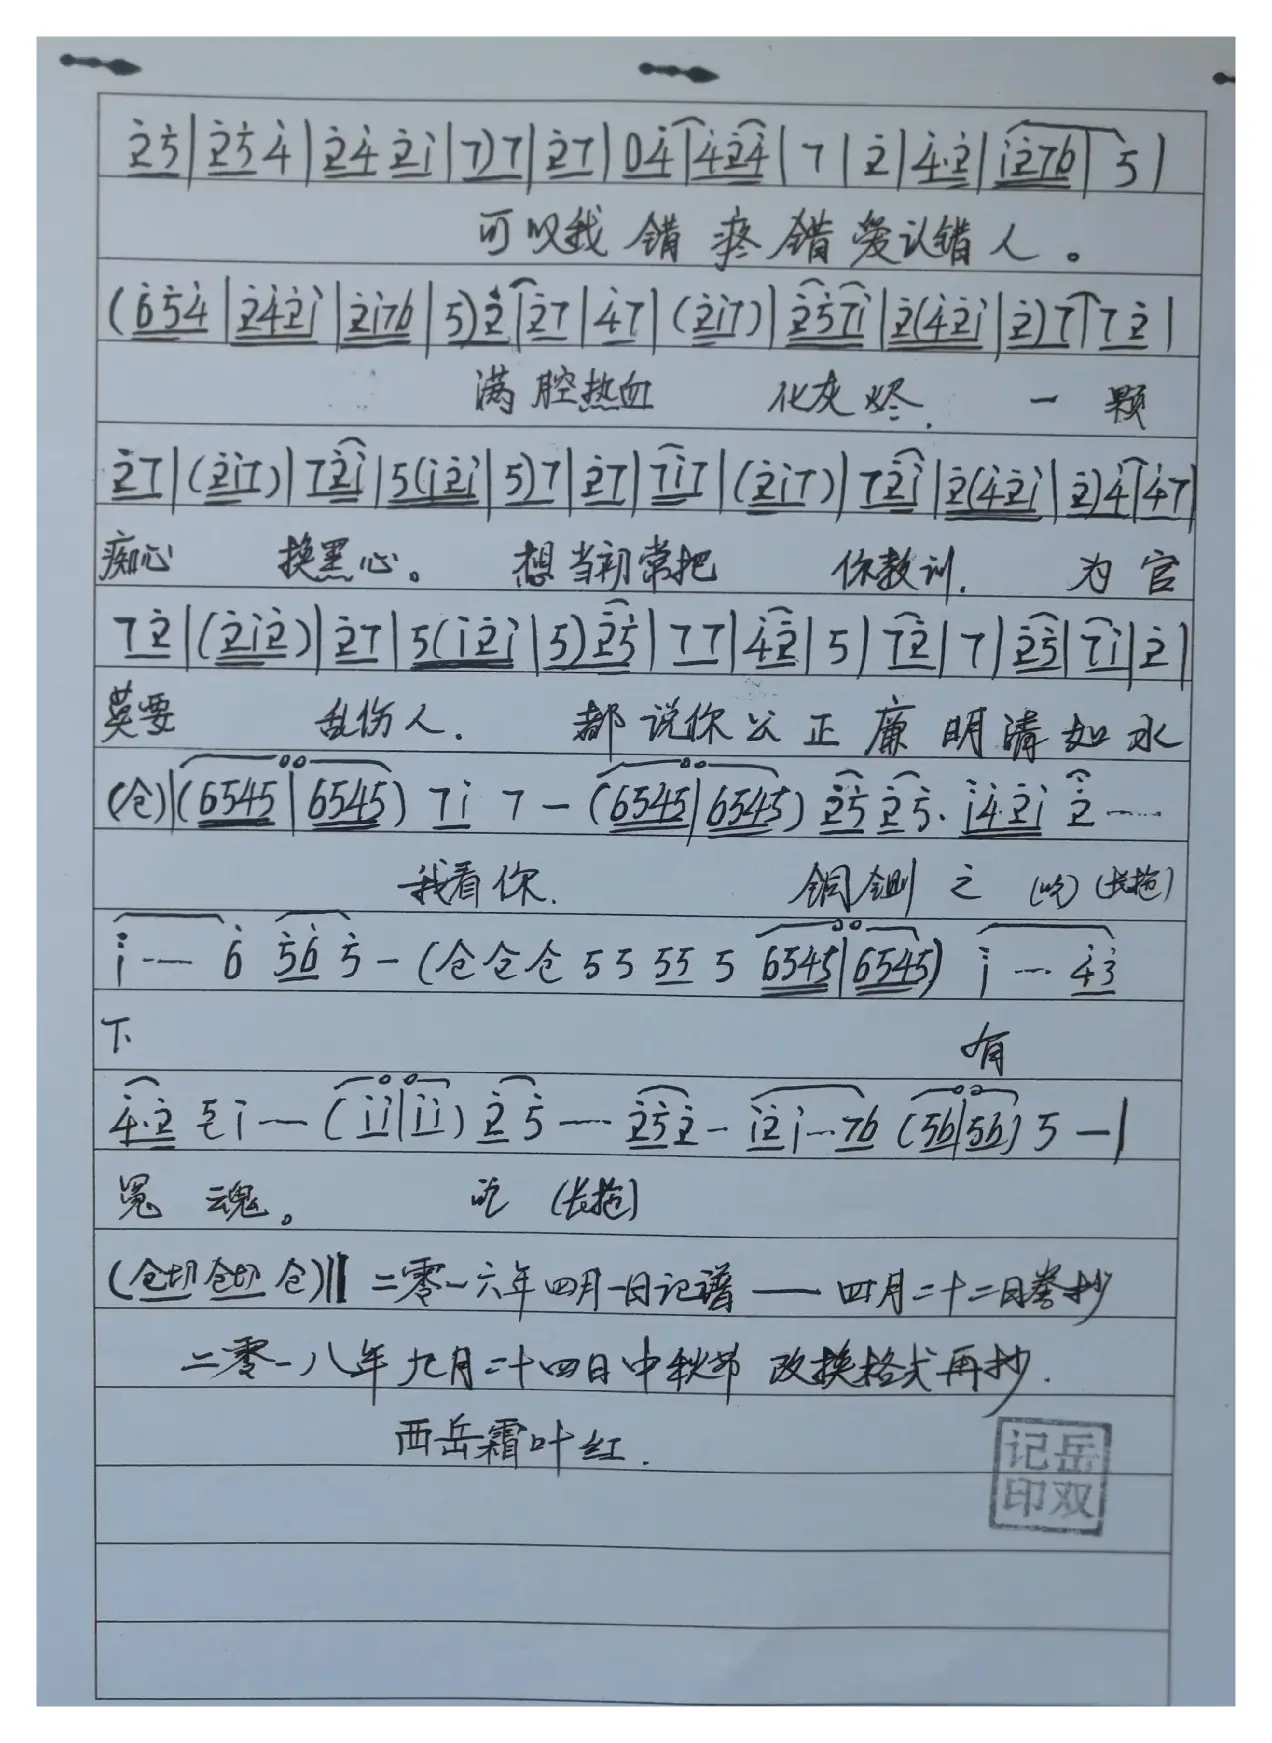 2 5 | 2 5 4 | 2 4 2 1 | 7) 7 | 2 7 | 0 4 | 4 2 4 | 7 | 2 | 4·2 | 1 2 7 6 | 5 |
可叹我 错 疼 错 爱 认错 人。
(6 5 4 | 2 4 2 1 | 2 1 7 6 | 5) 2 | 2 7 | 4 7 | (2 1 7) | 2 5 7 1 | 2 (4 2 1 | 2) 7 | 7 2 |
满腔热血 化灰烬. 一 颗
2 7 | (2 1 7) | 7 2 1 | 5 (1 2 1 | 5) 7 | 2 7 | 7 1 7 | (2 1 7) | 7 2 1 | 2 (4 2 1 | 2) 4 | 4 7 |
痴心 换黑心。 想当初常把 你教训. 为官
7 2 | (2 1 2) | 2 7 | 5 (1 2 1 | 5) 2 5 | 7 7 | 4 2 | 5 | 7 2 | 7 | 2 5 | 7 1 | 2 |
莫要 乱伤人. 都说你公正廉明清如水
(仓) | (6545 | 6545) 7 1 7 – (6545 | 6545) 2 5 2 5· 1 4·2 1 2 ……
我看你. 铜铡之 (吃) (长拖)
1 ··· 6 5 6 5 – (仓仓仓 5 5 55 5 6545 | 6545) 1 ··· 4 3
下 有
4·2 1 ··· (11 | 11) 2 5 ··· 2 5 2 – 1 2 1 ··· 7 6 (56 | 56) 5 – |
冤 魂。 吃 (长拖)
(仓切 仓切 仓) || 二零一六年四月一日记谱 —— 四月二十二日誊抄
二零一八年九月二十四日中秋节 改换格式再抄.
西岳霜叶红.
记岳
印双